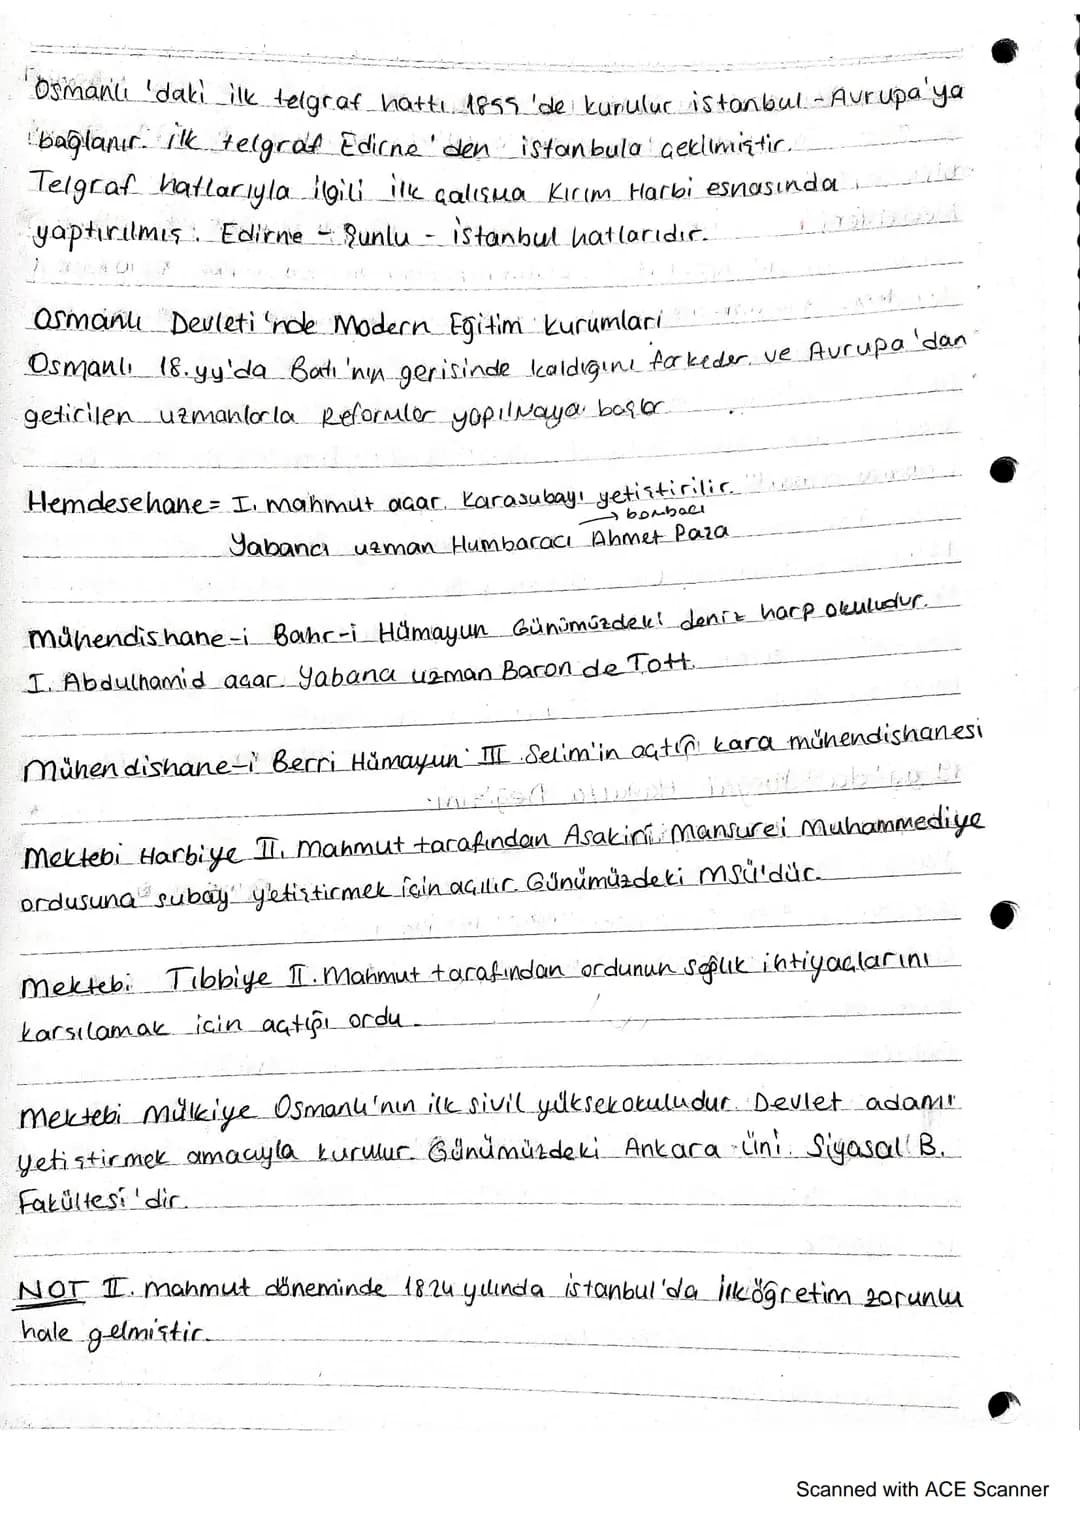 Osmanlı 'daki ilk telgraf hattı 1855 'de kurulur istanbul - Avrupa'ya
bağlanır. ilk telgraf Edirne'den istanbula çekilmiştir.
Telgraf hatlarıyla ilgili ilk çalışma Kırım Harbi esnasında
yaptırılmış. Edirne - Şunlu - istanbul hatlarıdır.
Osmanlı Devleti'nde Modern Eğitim Kurumlari
Osmanlı 18.yy'da Batı'nın gerisinde kaldıgını farkeder ve Avrupa'dan
getirilen uzmanlarla Reformlar yapılmaya başlar
Hemdesehane= I. mahmut açar. Karasubayı yetiştirilir.
→ bombacı
Yabancı uzman Humbaracı Ahmet Paşa
mühendishane-i Bahr-i Hümayun Günümüzdeki deniz harp okuludur.
I. Abdulhamid açar Yabancı uzman Baron de Tott.
Mühendishane-i Berri Hümayun III. Selim'in açtığı kara mühendishanesi
Mektebi Harbiye II. Mahmut tarafından Asakiri Mansurei Muhammediye
ordusuna subay yetiştirmek için açılır. Günümüzdeki MSÜ'dür.
Mektebi Tıbbiye II. Mahmut tarafından ordunun sağlık ihtiyaçlarını
karsılamak için açtığı ordu.
Mektebi Mülkiye Osmanlı'nın ilk sivil yüksekokuludur. Devlet adamı
yetiştirmek amacıyla kurulur. Günümüzdeki Ankara Üni. Siyasal B.
Fakültesi'dir.
NOT II. mahmut döneminde 1824 yılında istanbul'da ilköğretim zorunlu
hale gelmiştir.
Scanned with ACE Scanner